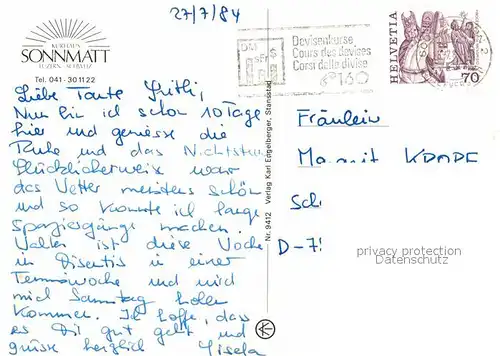 27/7/84
KURHAUS
SONNMATT
LUZERN · SCHWEIZ
Tel. 041 - 30 11 22
Liebe Tante
Nun bin ich schon 10 Tage
hier und geniesse die
Ruhe und das Nichtstun
Glücklicherweise war
das Wetter meistens schön
und so konnte ich lange
Spaziergänge machen.
ist diese Woche
in Disentis in einer
Tenniswoche und wird
mich Samstag holen
kommen. Ich hoffe, dass
es Dir gut geht und
grüsse herzlich Gisela
Nr. 9412 Verlag Karl Engelberger, Stansstad
Devisenkurse
Cours des devises
Corsi delle divise
160
HELVETIA
70
Fräulein
Margrit
Sch
D-7
privacy protection
Datenschutz